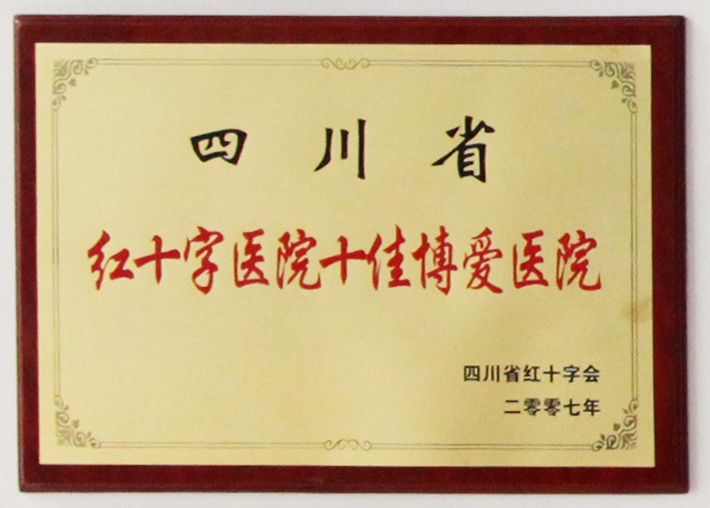 四川省
红十字医院十佳博爱医院
四川省红十字会
二零零七年